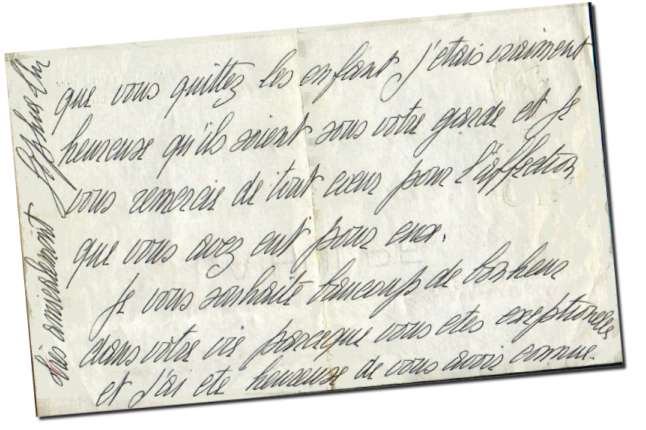 que vous quittez les enfant j'étais vraiment
heureuse qu'ils soient sous votre garde et je
vous remercie de tout cœur pour l'affection
que vous avez eut pour eux.
Je vous souhaite baucoup de bonheur
dans votre vie parceque vous etes exeptionelle
et j'ai ete heureuse de vous avoir connue.
très amicalement